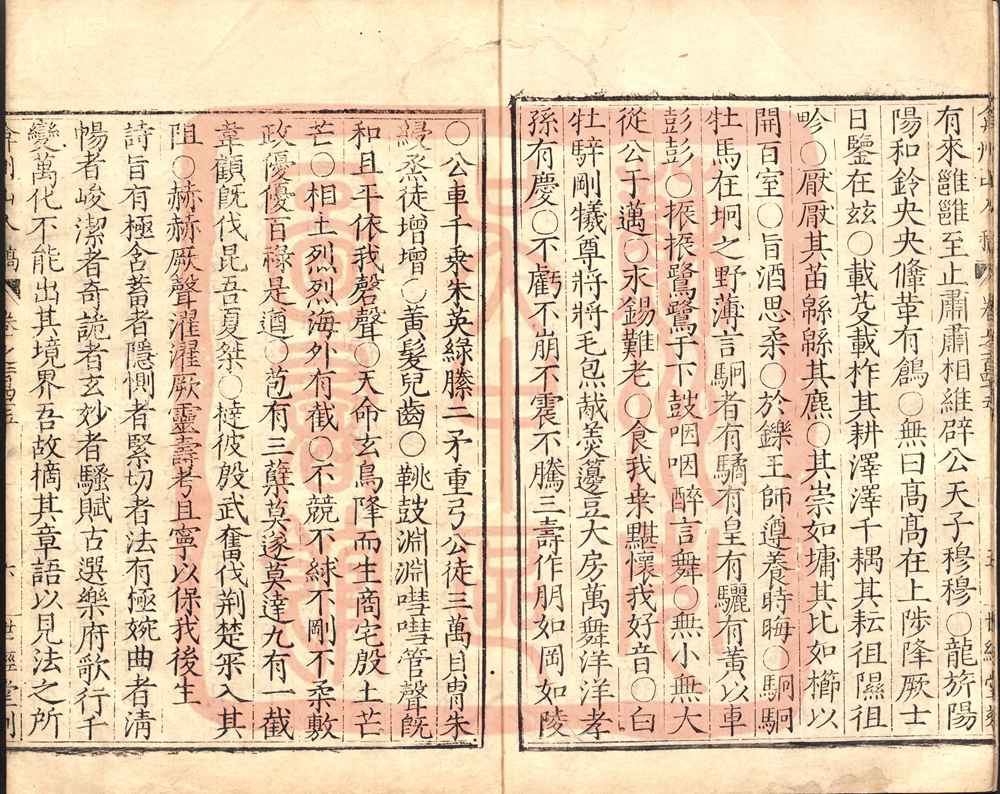 有來雝雝至止肅肅相維辟公天子穆穆○龍旂陽
陽和鈴央央鞗革有鶬○無曰高高在上陟降厥士
日鑒在玆○載芟載柞其耕澤澤千耦其耘徂隰徂
畛○厭厭其苗緜緜其麃○其崇如墉其比如櫛以
開百室○旨酒思柔○於鑠王師遵養時晦○駉駉
牡馬在坰之野薄言駉者有驈有皇有驪有黃以車
彭彭○振振鷺鷺于下鼓咽咽醉言舞○無小無大
從公于邁○永錫難老○食我桑黮懷我好音○白
牡騂剛犧尊將將毛炰胾羹籩豆大房萬舞洋洋孝
孫有慶○不虧不崩不震不騰三壽作朋如岡如陵
○公車千乗朱英綠縢二矛重弓公徒三萬貝冑朱
綅烝徒增增○黃髮兒齒○鞉鼓淵淵嘒嘒管聲旣
和且平依我磬聲○天命玄鳥降而生商宅殷土芒
芒○相土烈烈海外有截○不競不絿不剛不柔敷
政優優百祿是遒○苞有三蘖莫遂莫達九有一截
韋顧旣伐昆吾夏桀○撻彼殷武奮伐荆楚冞入其
阻○赫赫厥聲濯濯厥靈壽考且寧以保我後生
詩旨有極含蓄者隱惻者緊切者法有極婉曲者淸
暢者峻潔者奇詭者玄妙者騷賦古選樂府歌行千
變萬化不能出其境界吾故摘其章語以見法之所
弇州山人稿 卷之一百四十五 六 世經堂刻